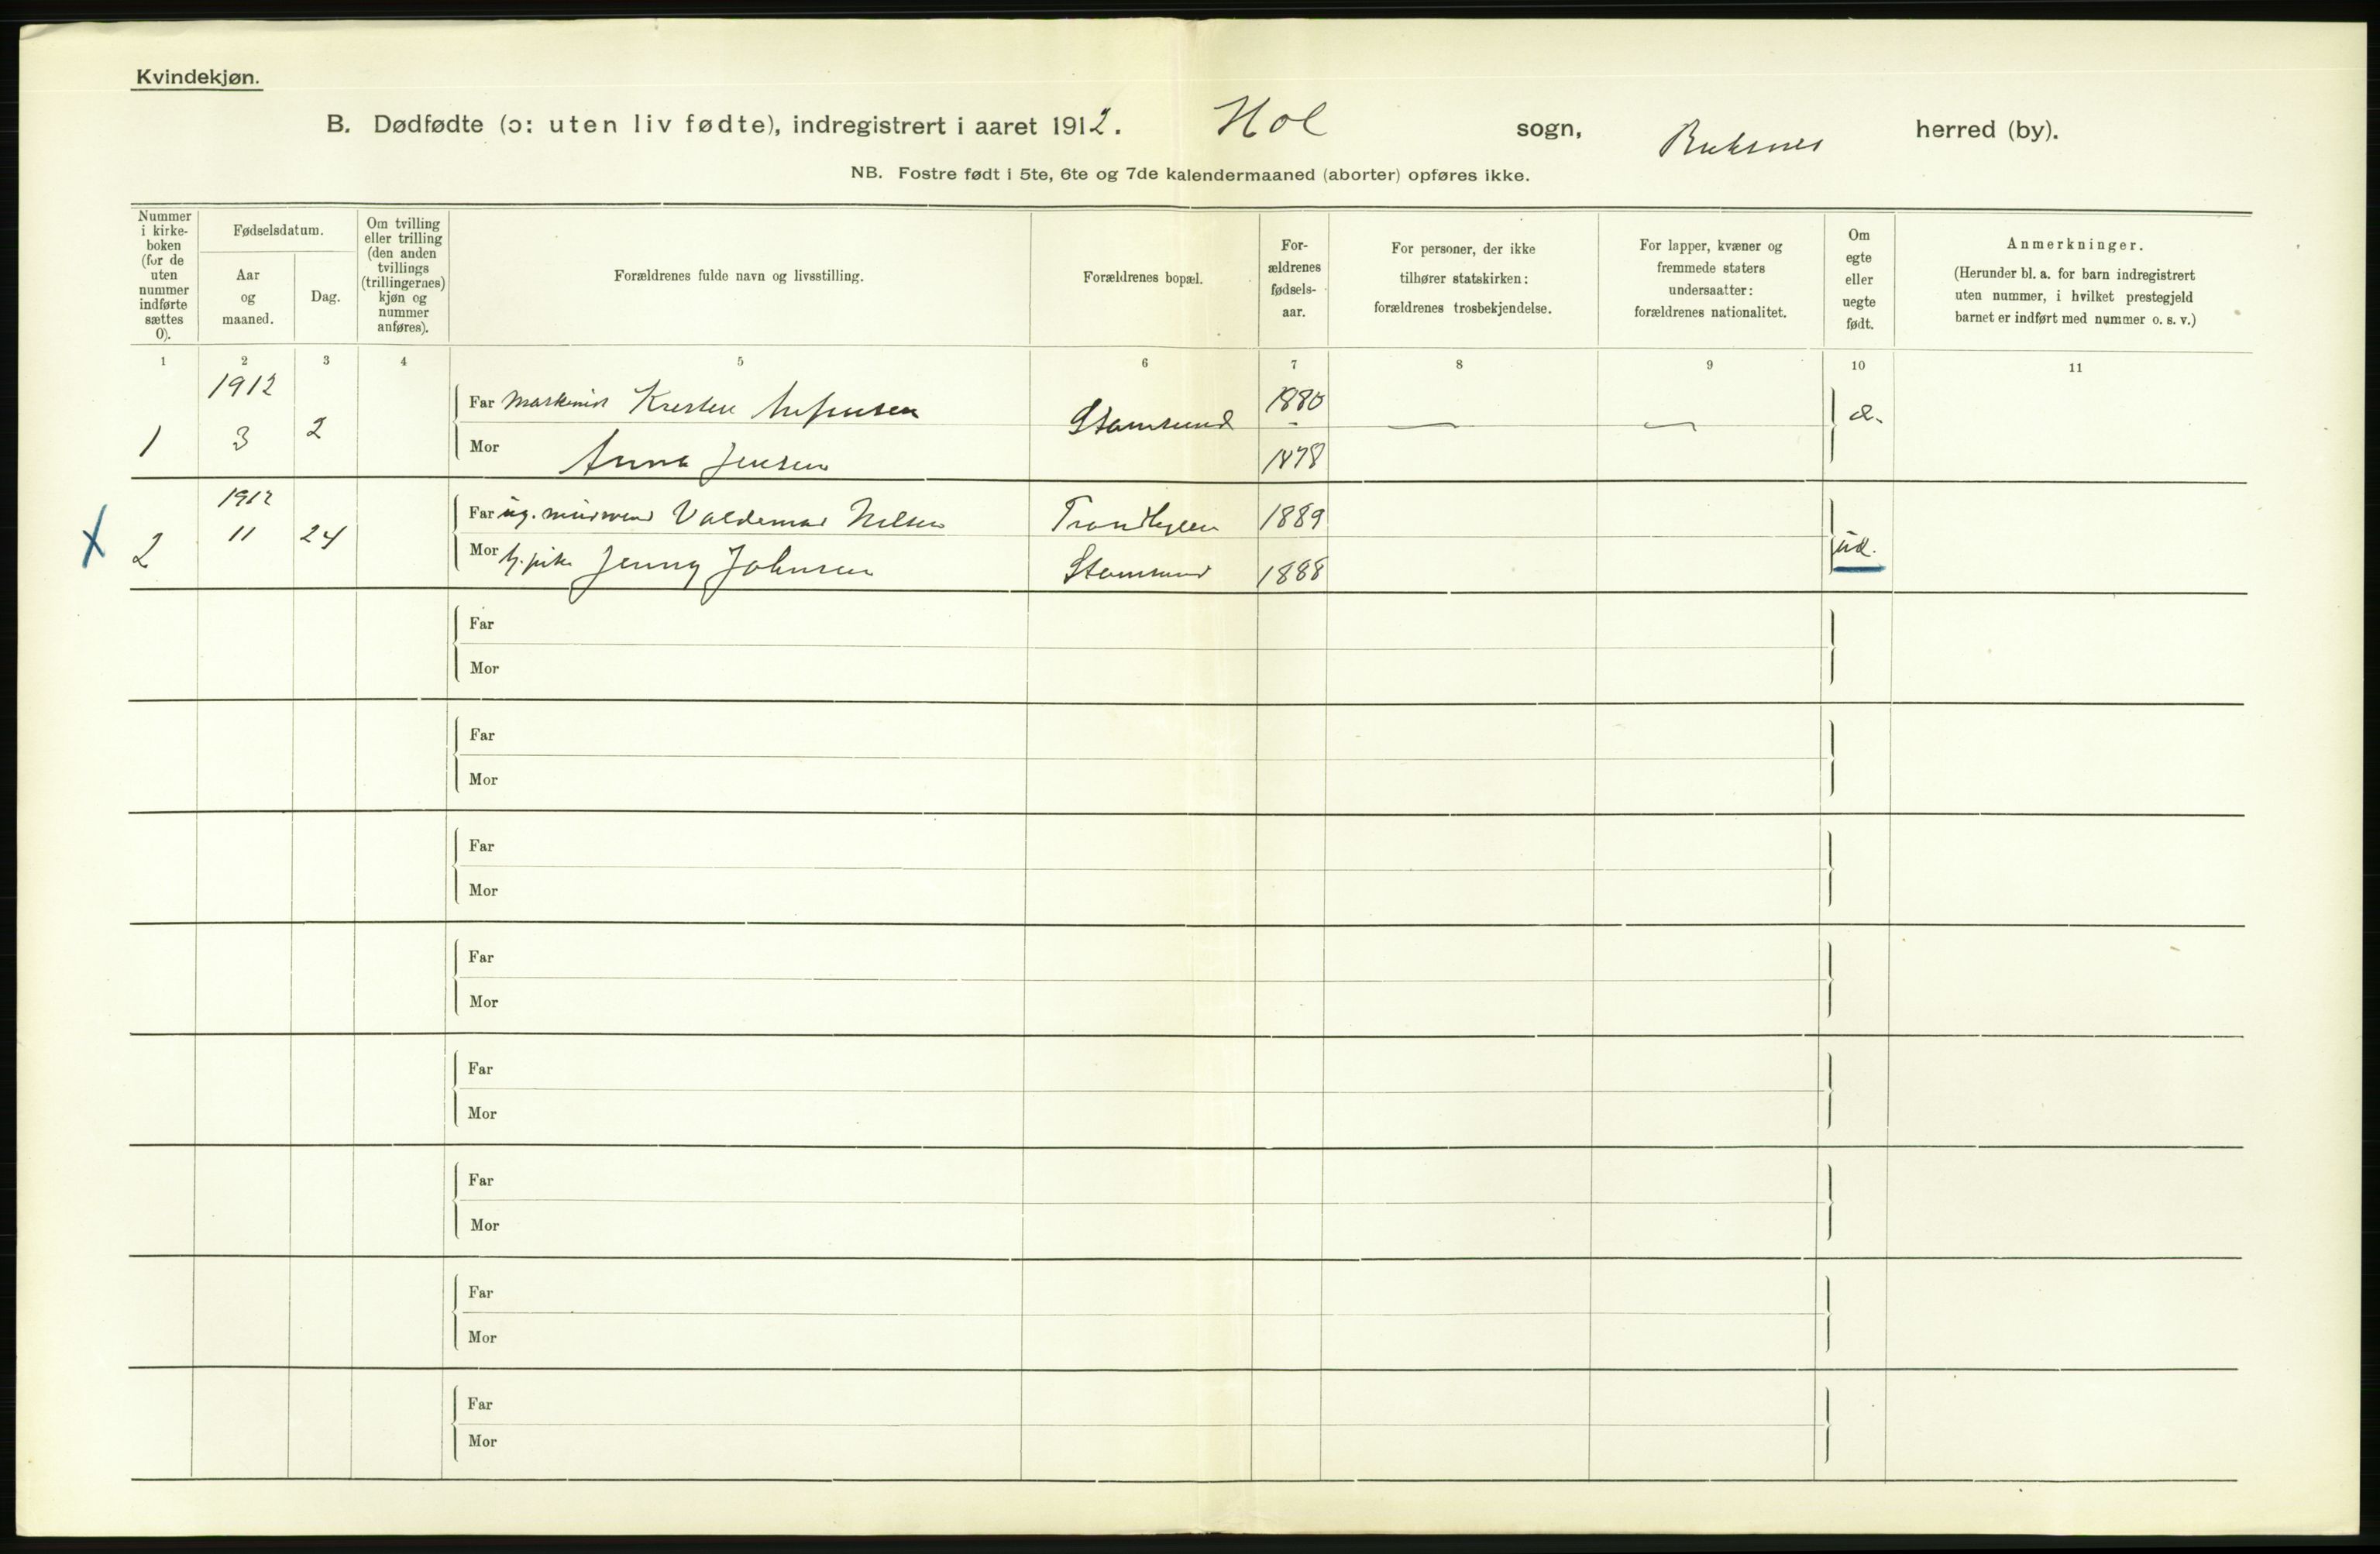 Kvindekjøn.
B. Dødfødte (ɔ: uten liv fødte), indregistrert i aaret 1912. Hol sogn, Buksnes herred (by).
NB. Fostre født i 5te, 6te og 7de kalendermaaned (aborter) opføres ikke.
Nummer i kirke- boken (for de uten nummer indførte sættes 0).
Fødselsdatum.
Aar og maaned.
Dag.
Om tvilling eller trilling (den anden tvillings (trillingernes) kjøn og nummer anføres).
Forældrenes fulde navn og livsstilling.
Forældrenes bopæl.
For- ældrenes fødsels- aar.
For personer, der ikke tilhører statskirken: forældrenes trosbekjendelse.
For lapper, kvæner og fremmede staters undersaatter: forældrenes nationalitet.
Om egte eller uegte født.
Anmerkninger.
(Herunder bl. a. for barn indregistrert uten nummer, i hvilket prestegjeld barnet er indført med nummer o. s. v.)
1 2 3 4 5 6 7 8 9 10 11
1912
1 3 2 Far Maskinist Kresten Stamsund 1880 — — æ.
Mor Anna Jensen 1878
1912
2 11 24 Far ug. Valdemar Nilsen Trondhjem 1889
Mor pike Jenny Johnsen Stamsund 1888 uæ.
Far
Mor
Far
Mor
Far
Mor
Far
Mor
Far
Mor
Far
Mor
Far
Mor
Far
Mor